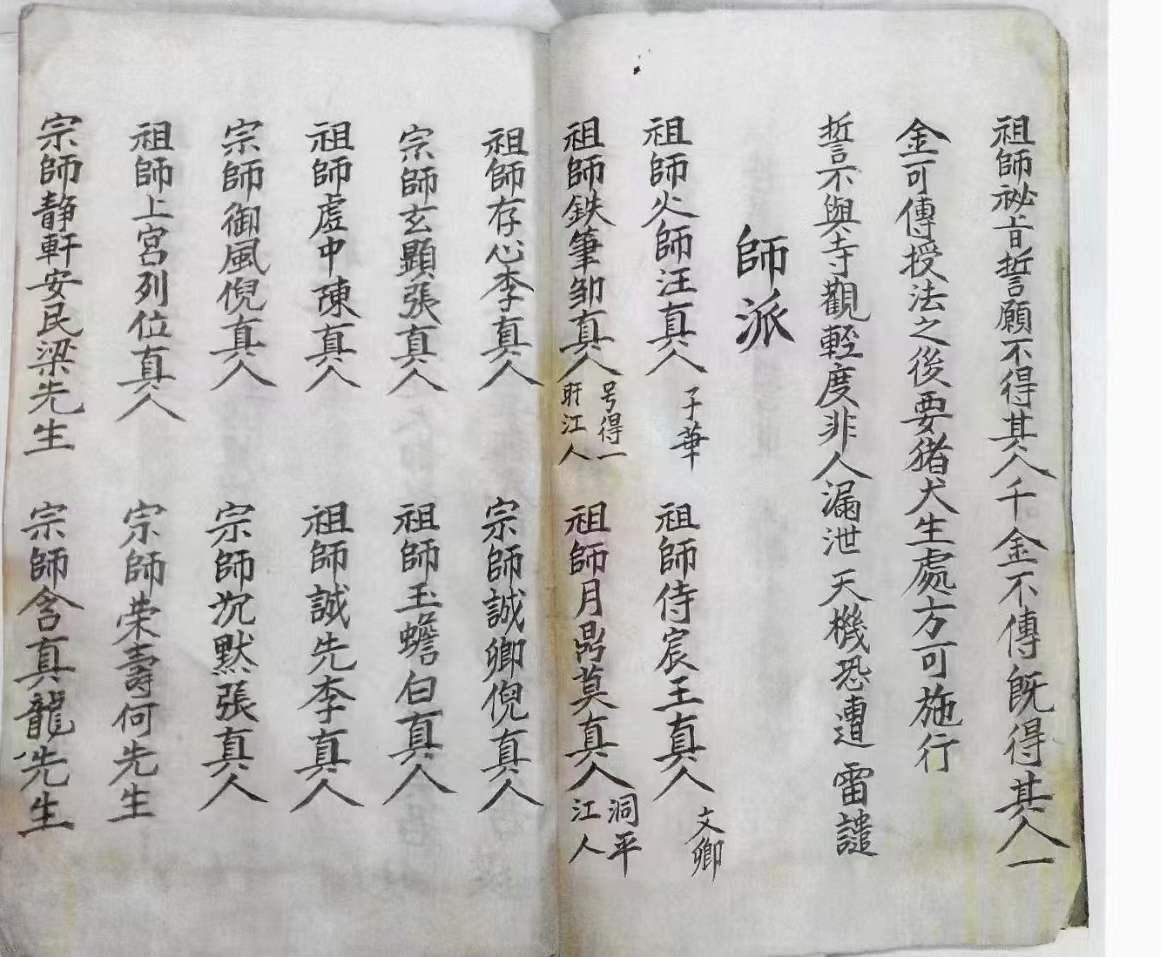 祖師祕旨誓願不得其人千金不傳既得其人一
金可傳授法之後要猪犬生處方可施行
誓不與寺觀輕度非人漏泄 天機恐遭 雷譴
師派
祖師火師汪真人 子華 祖師侍宸王真人 文卿
祖師鉄筆邹真人 号得一 盱江人 祖師月鼎莫真人 洞平 江人
祖師存心李真人 宗師誠卿倪真人
宗師玄顯張真人 祖師玉蟾白真人
祖師虛中陳真人 祖師誠先李真人
宗師御風倪真人 宗師沉默張真人
祖師上宮列位真人 宗師荣壽何先生
宗師静軒安民梁先生 宗師含真龍先生